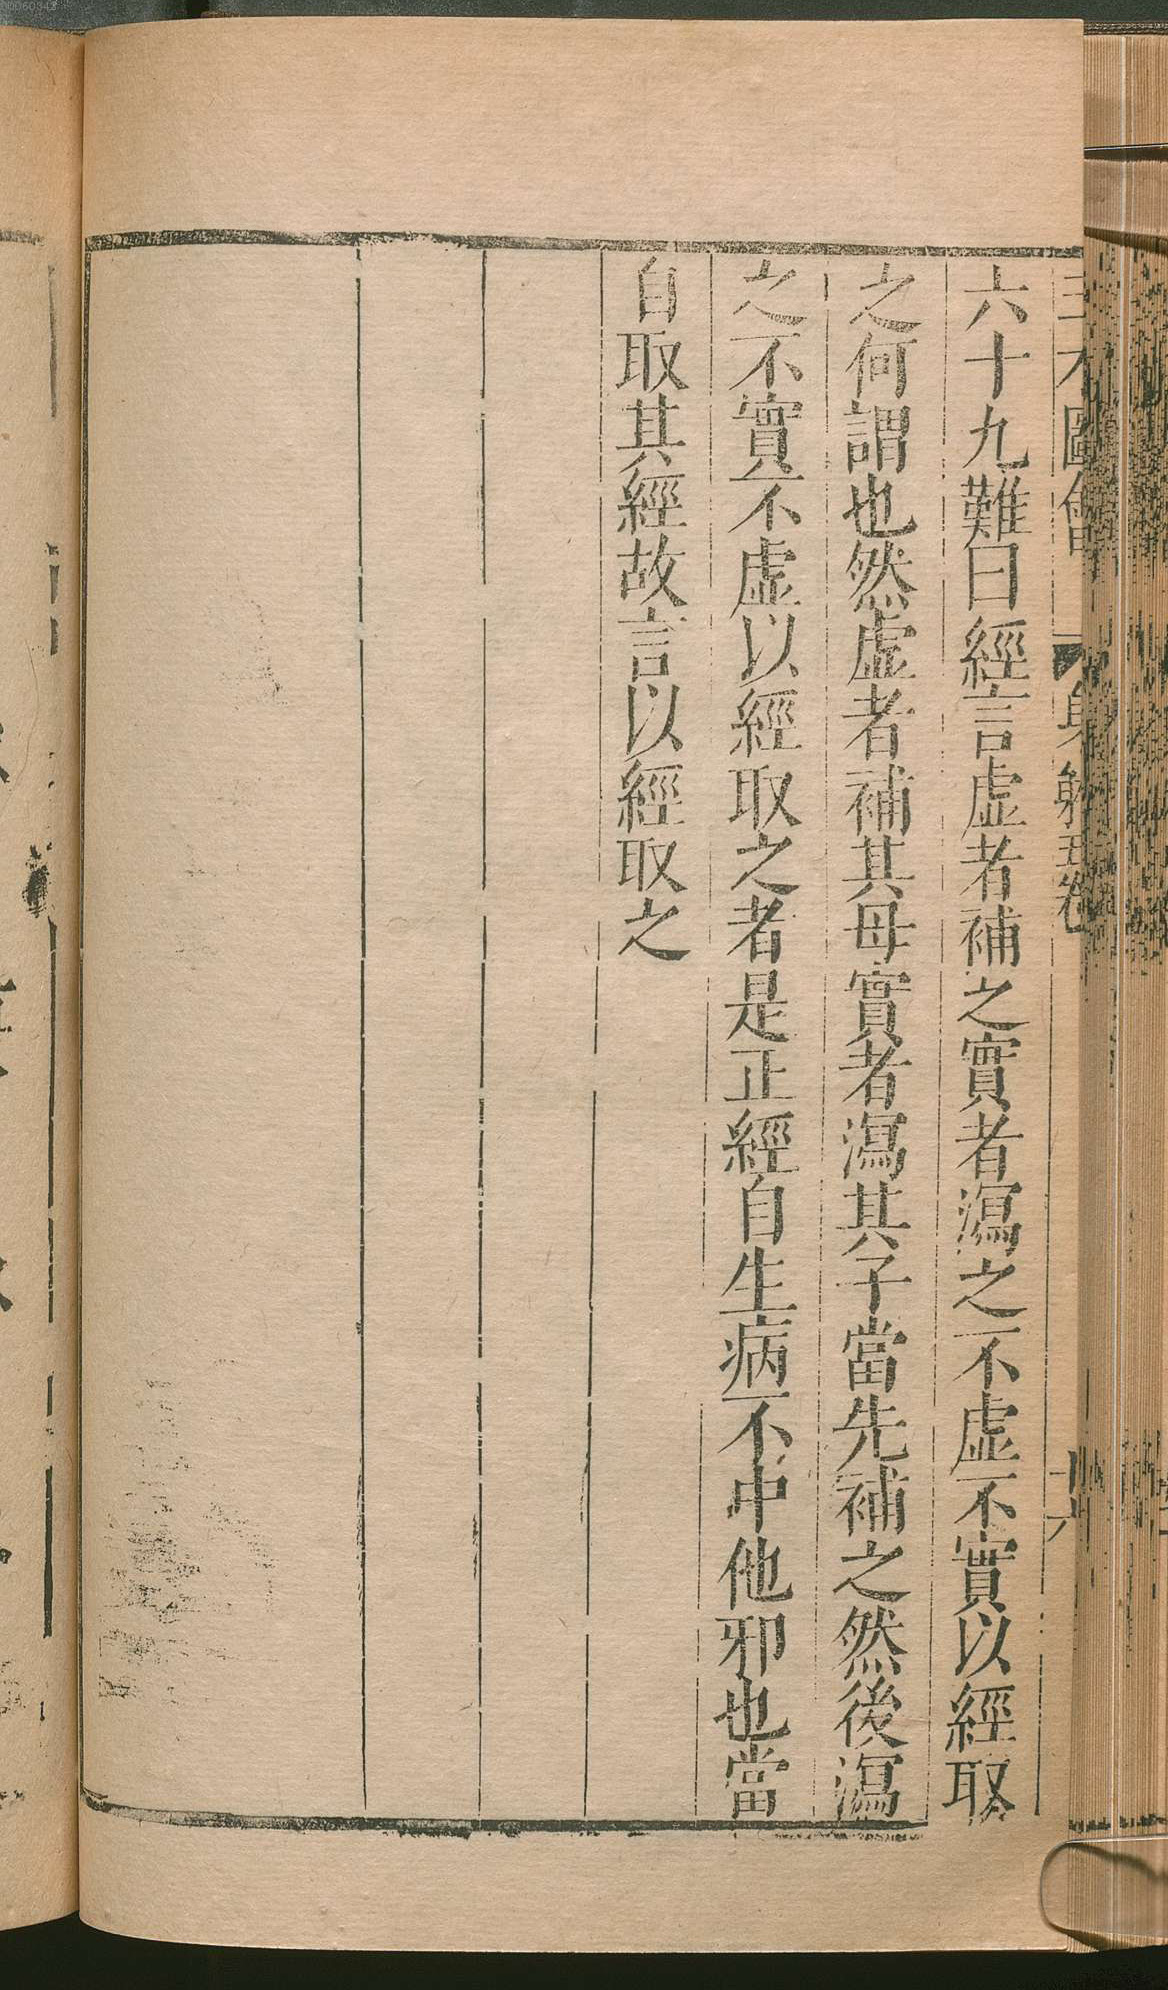 六十九難曰經言虛者補之實者瀉之不虛不實以經取
之何謂也然虛者補其母實者瀉其子當先補之然後瀉
之不實不虛以經取之者是正經自生病不中他邪也當
自取其經故言以經取之
三才圖會
身體五卷
十六
00060342